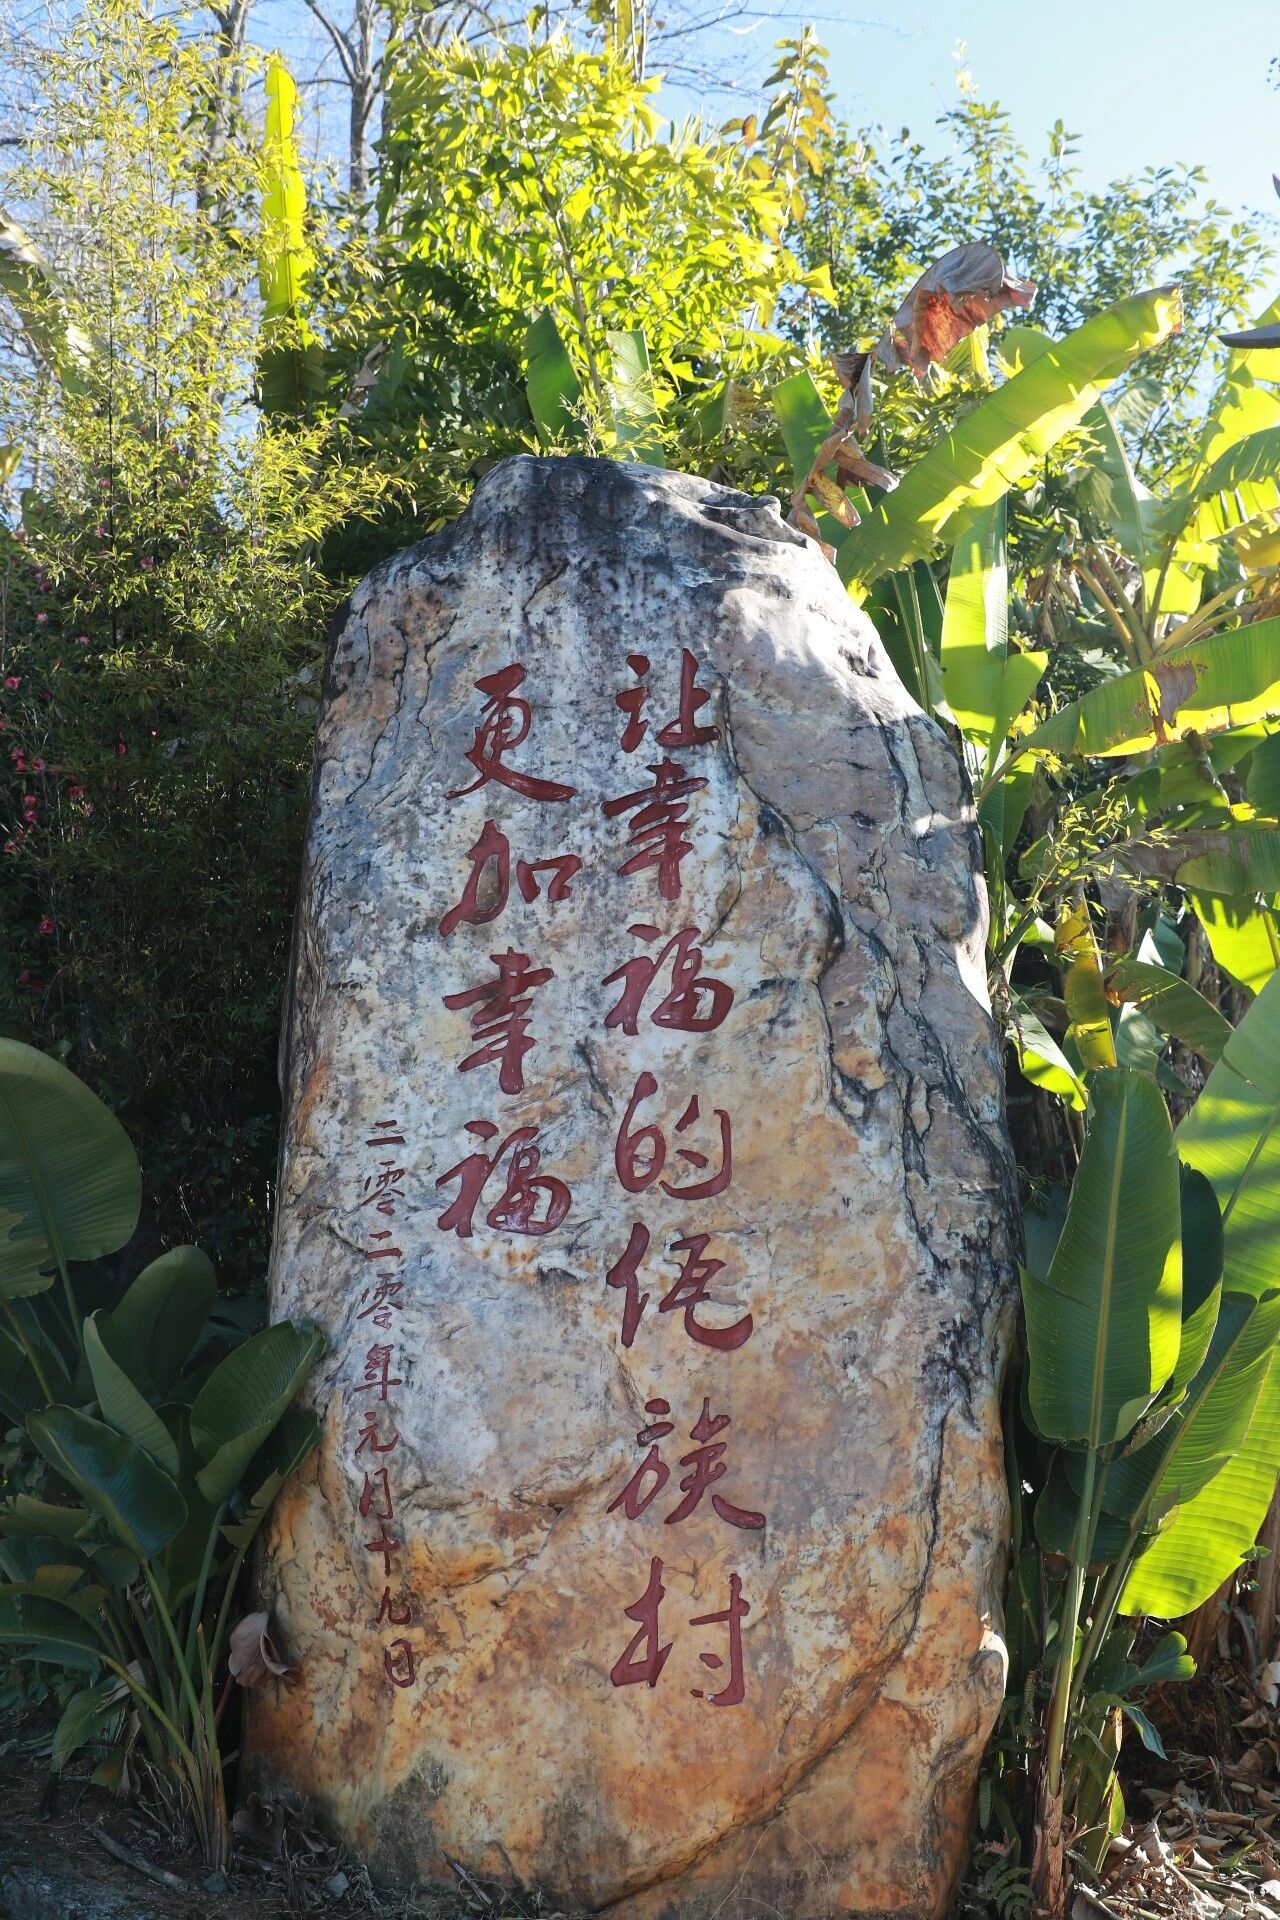 让幸福的佤族村
更加幸福
二零二零年元月十九日